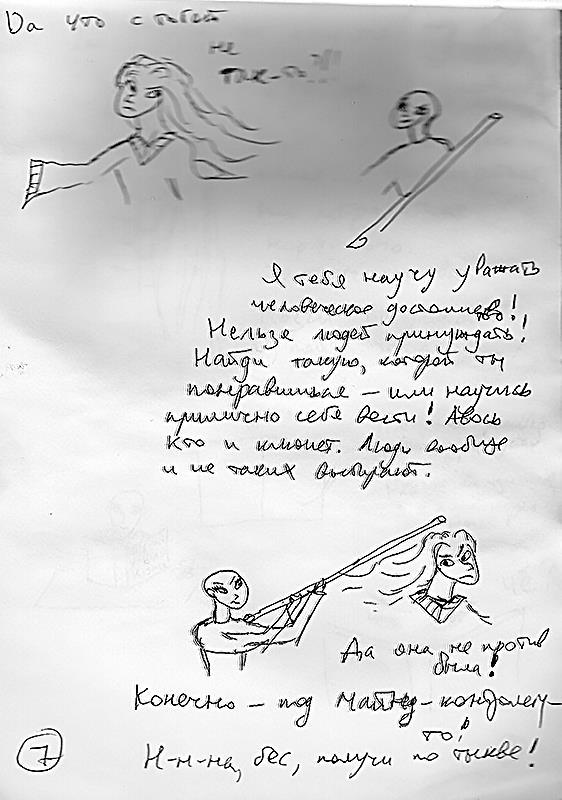 Да что с тобой
не
так-то?!!!
Я тебя научу уважать
человеческое достоинство!
Нельзя людей принуждать!
Найди такую, которой ты
понравишься – или научись
прилично себя вести! Авось
кто и клюнет. Люди вообще
и не таких выбирают.
Да она не против
была!
Конечно – под майнд-контролем-
то!
Н-н-на, бес, получи по тыкве!
7